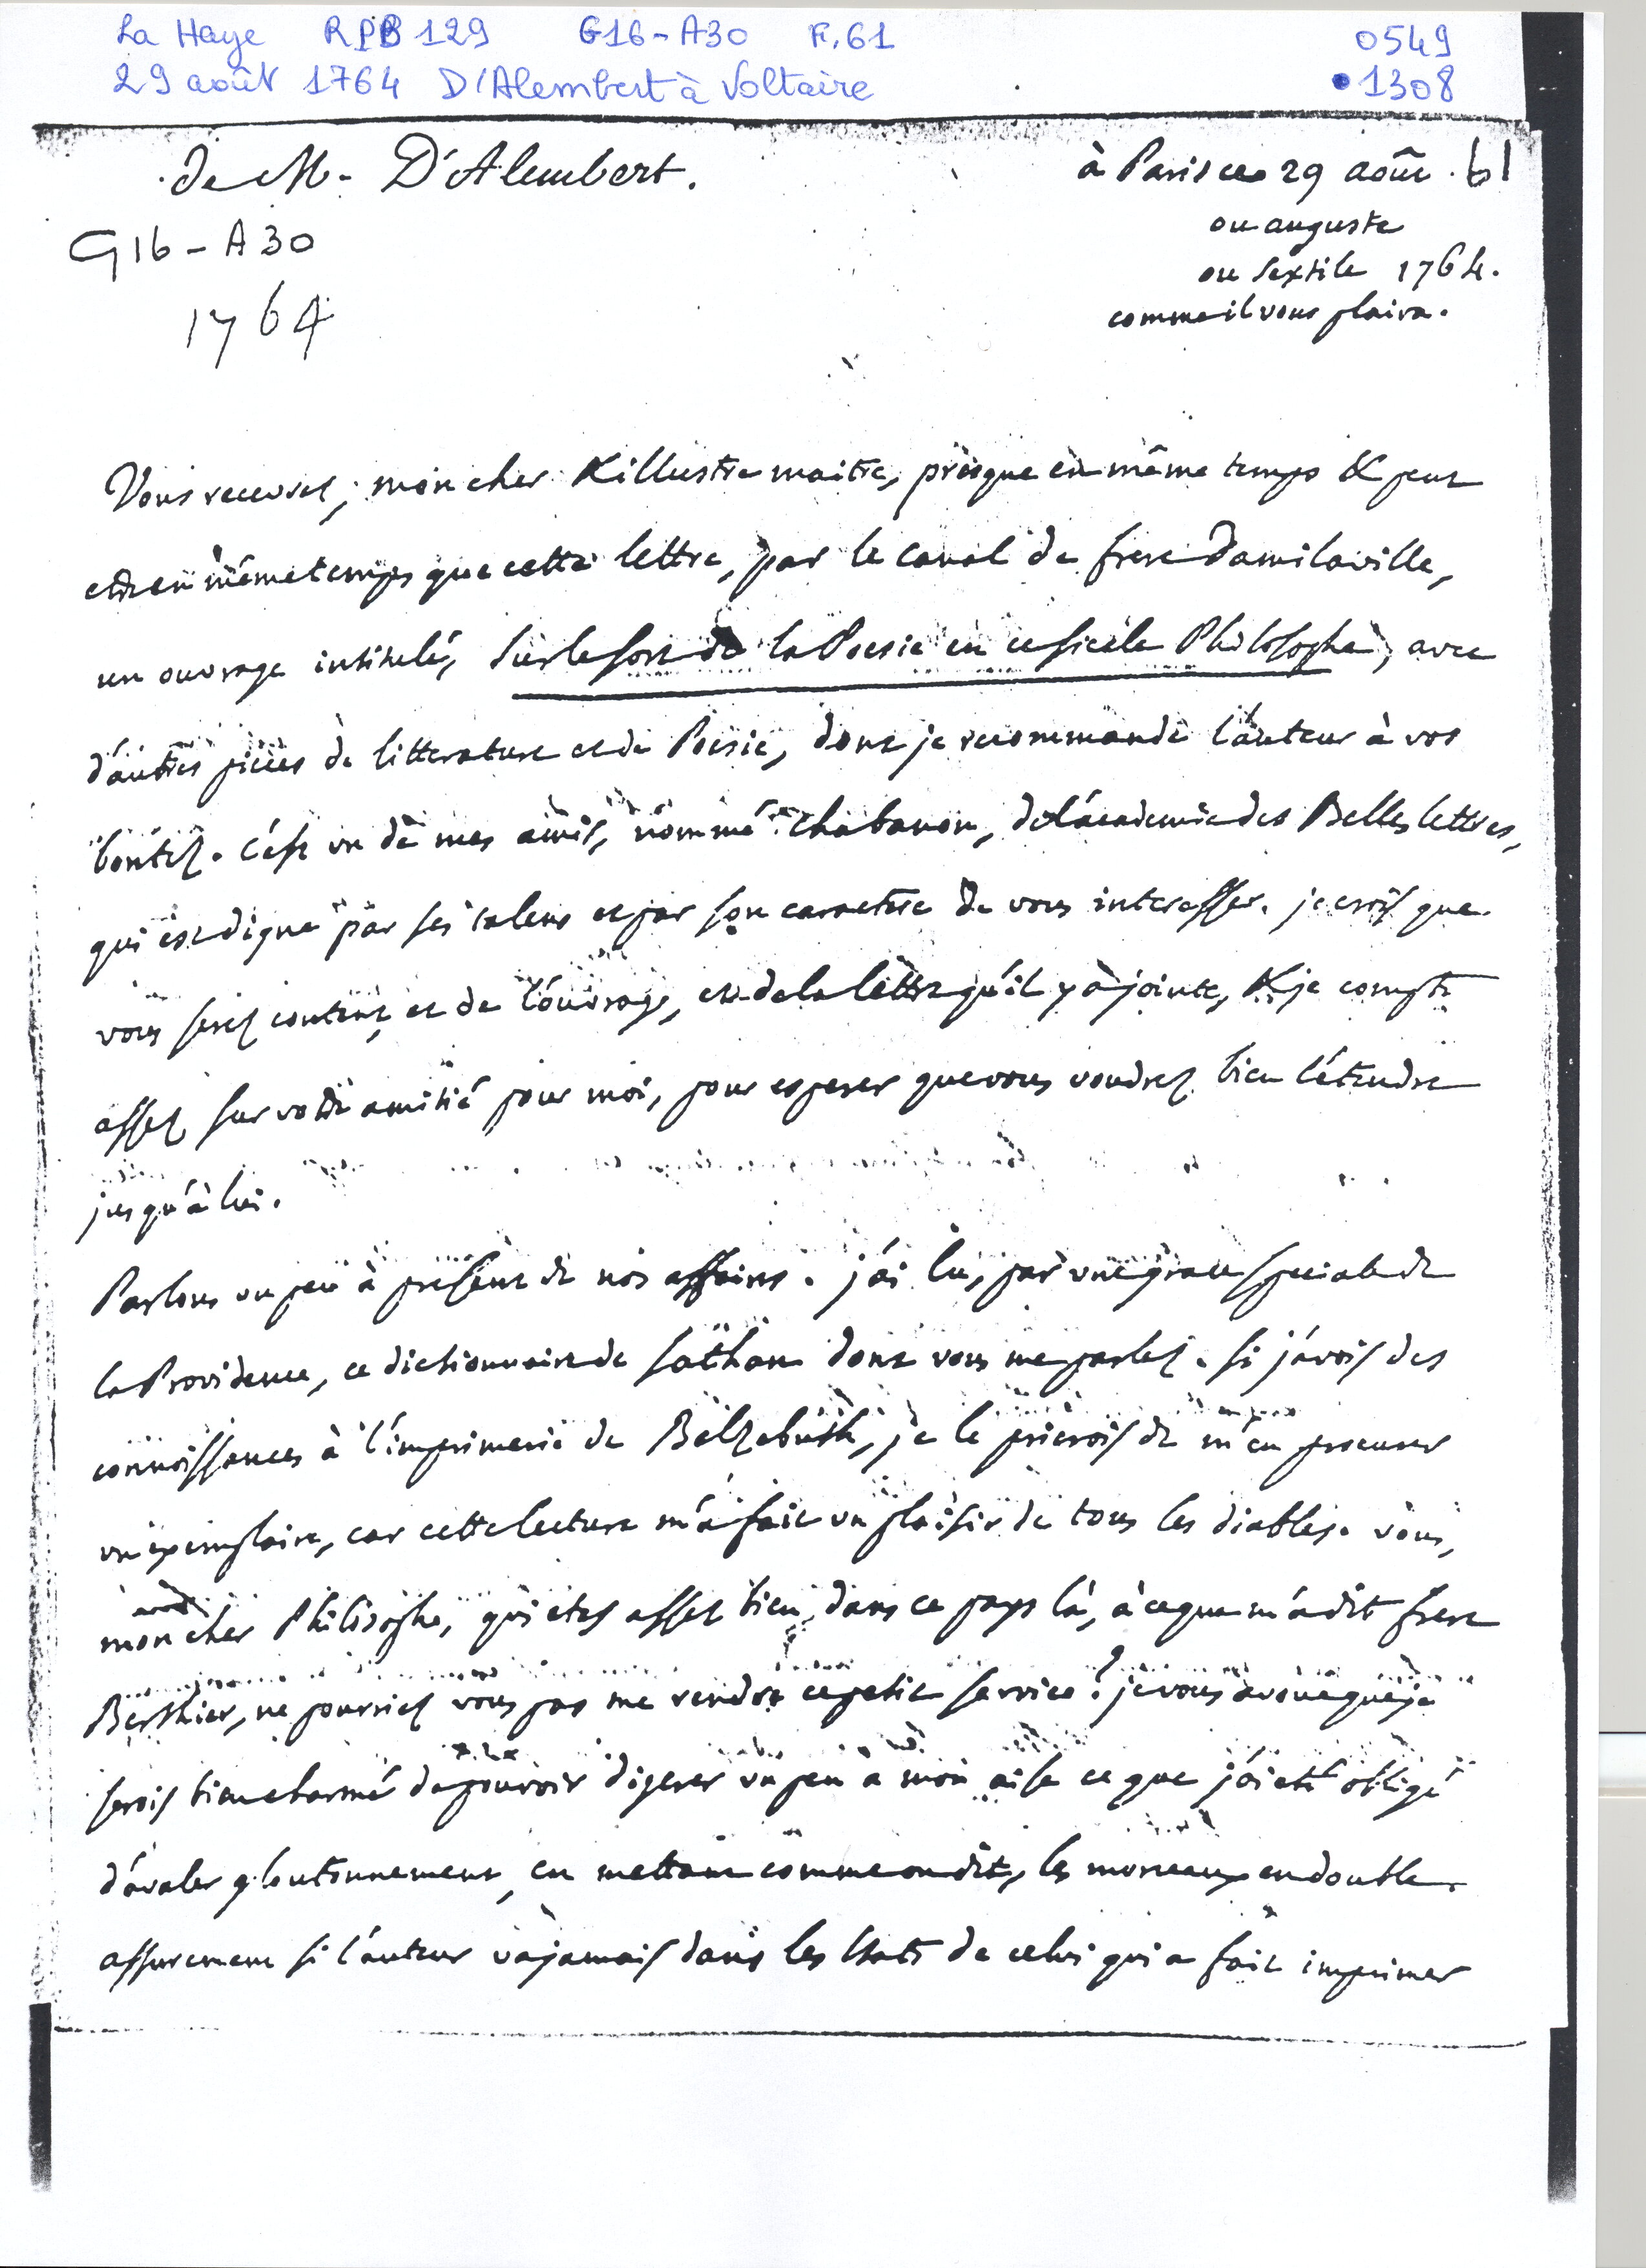 La Haye RPB 129 G16-A30 F.61 0549
29 août 1764 D'Alembert à Voltaire 1308
de M. D'Alembert. à Paris ce 29 août. 61
G16-A30 ou auguste
1764 ou sextile 1764.
comme il vous plaira.
Vous recevrez, mon cher & illustre maitre, presque en même temps & peut
etre en même temps que cette lettre, par le canal de frere Damilaville,
un ouvrage intitulé, Sur le sort de la Poesie en ce siecle Philosophe, avec
d'autres pieces de litterature et de Poesie, dont je recommande l'auteur à vos
bontez. c'est un de mes amis, nommé Chabanon, de l'academie des Belles lettres,
qui est digne par ses talens et par son caractere de vous interesser. je crois que
vous serez content, et de l'ouvrage, et de la lettre qu'il y a jointe, & je compte
assez sur votre amitié pour moi, pour esperer que vous voudrez bien l'étendre
jusqu'à lui.
Parlons un peu à present de nos affaires. j'ai lu, par une grace speciale de
la Providence, ce dictionnaire de Sathan dont vous me parlez. si j'avois des
connoissances à l'imprimerie de Belzebuth, je le prierois de m'en procurer
un exemplaire, car cette lecture m'a fait un plaisir de tous les diables. vous,
mon cher Philosophe, qui etes assez bien dans ce pays là, à ce que m'a dit frere
Berthier, ne pourriez vous pas me rendre ce petit service? je vous avoue que je
serois bien charmé de pouvoir digerer un peu à mon aise ce que j'ai eté obligé
d'avaler gloutonnement, en mettant comme on dit, les morceaux en double.
assurement si l'auteur va jamais dans les Etats de celui qui a fait imprimer